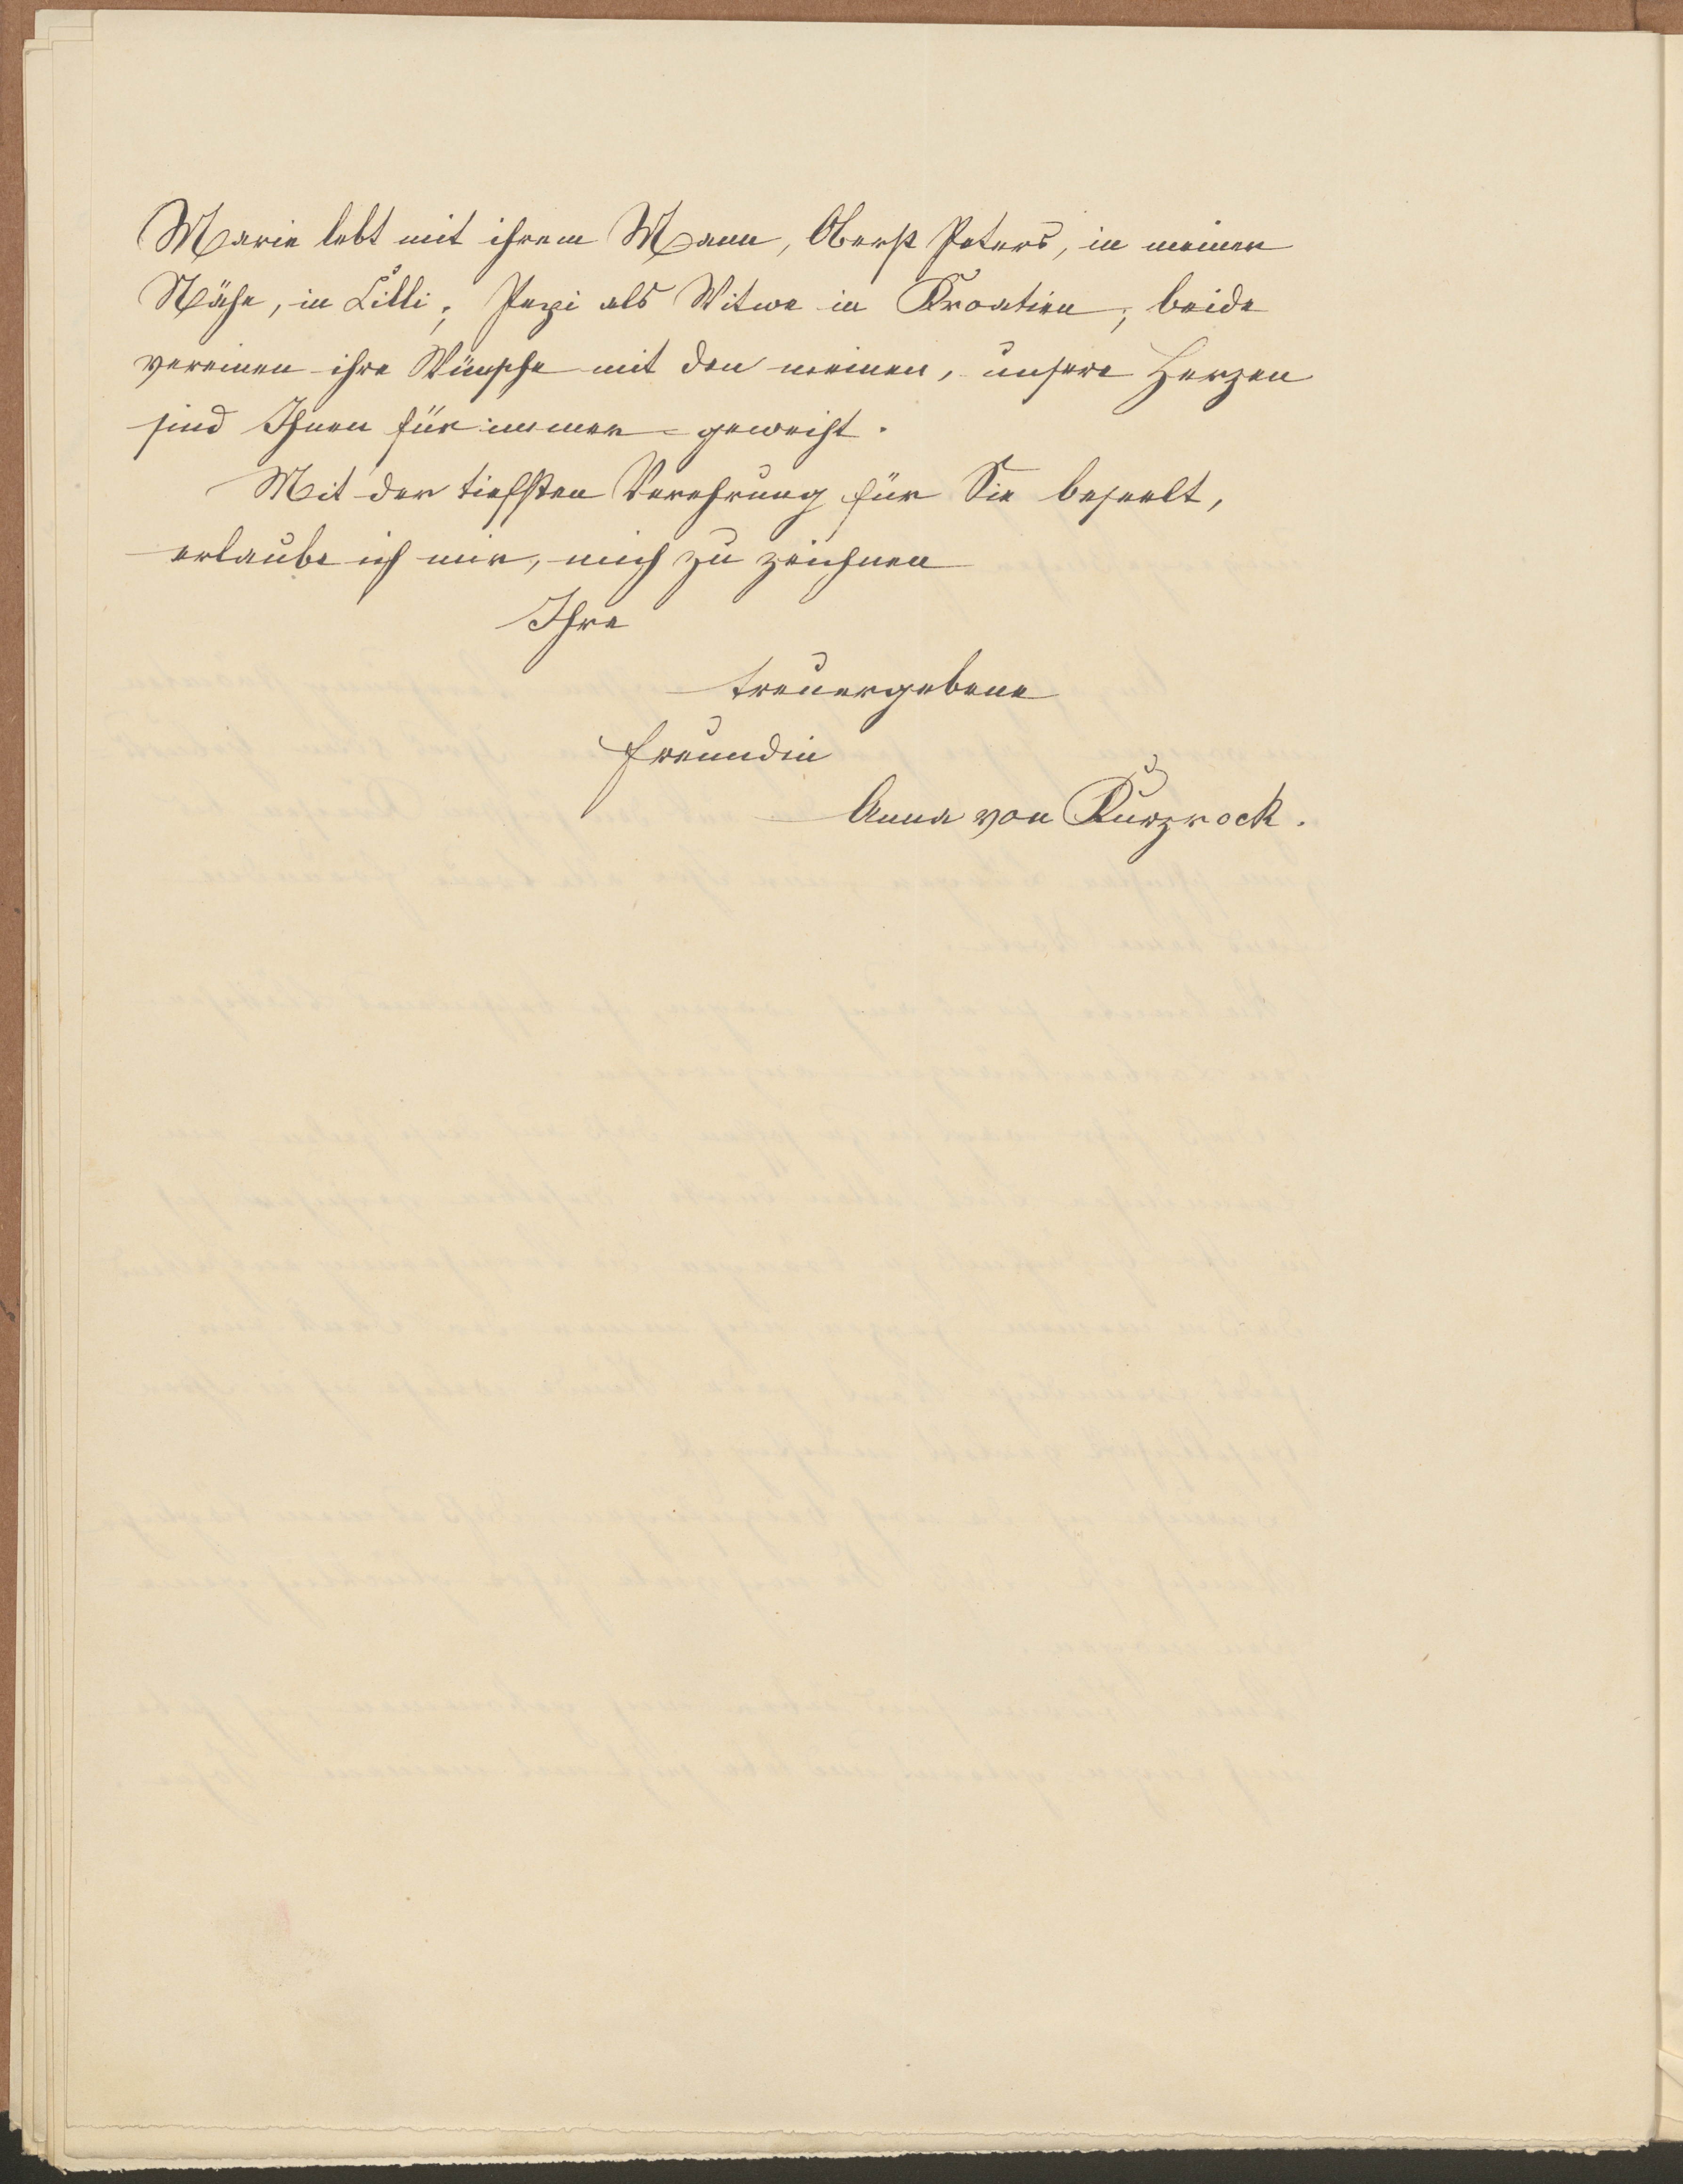 Marie lebt mit ihrem Mann, Oberst Peters, in meiner
Nähe, in Cilli; Pepi als Witwe in Kroatien; beide
vereinen ihre Wünsche mit den meinen, unsere Herzen
sind Ihnen für immer geweiht.
Mit der tiefsten Verehrung für Sie beseelt,
erlaube ich mir, mich zu zeichnen
Ihre
treuergebene
Freundin
Anna von Kurzrock.